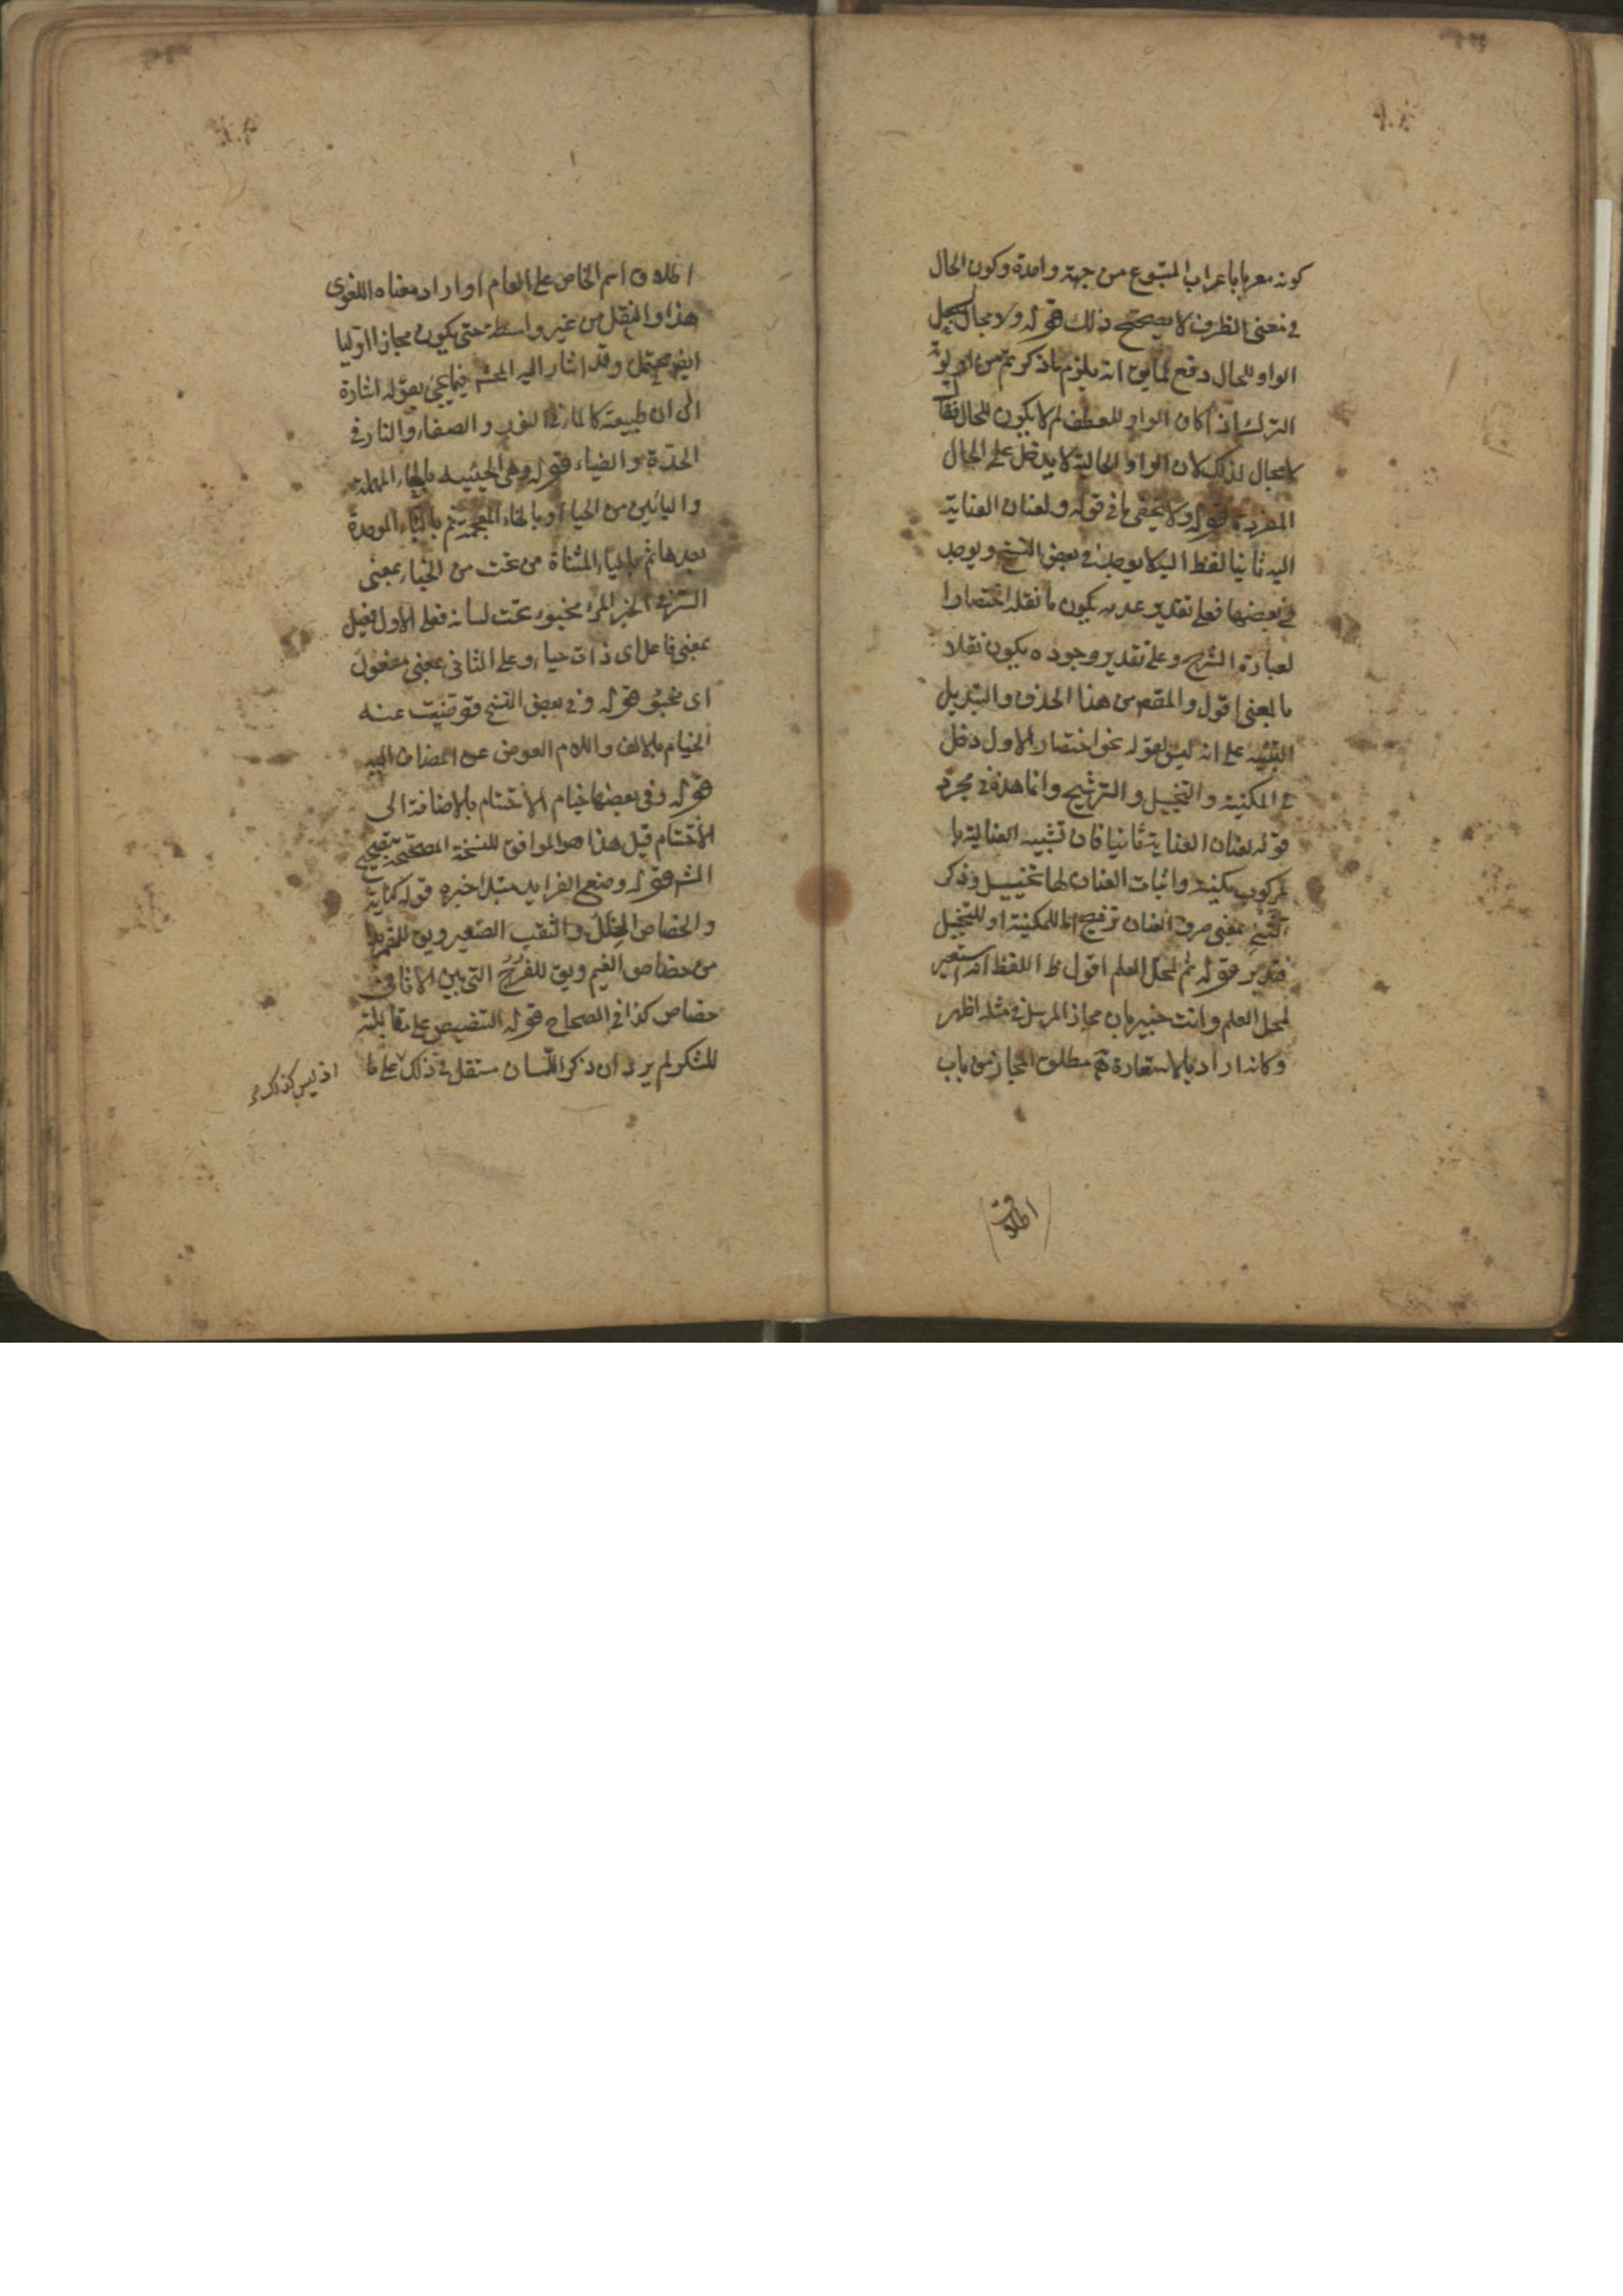 كونه معربا باعراب المتبوع من جهة واحدة وكون الحال
في معنى الظرف لا يصحح ذلك قوله ولا مجال لجعل
الواو للحال دفع لما يق انه يلزم ما ذكرتم من اولوية
الترك اذا كان الواو للعطف لم لا يكون للحال فقال
لا مجال لذلك لان الواو الحالية لا يدخل على الحال
المفردة قوله ولا يخفى ما في قوله ولعنان العناية
اليه ثانيا لفظ اليه لا يوجد في بعض النسخ ويوجد
في بعضها فعلى تقدير عدمه يكون ما نقله اختصارا
لعبارة الشرح وعلى تقدير وجوده يكون نقلا
بالمعنى اقول والمقصم من هذا الحذف والتبديل
التنبيه على انه ليس لقوله نحو اختصار الاول دخل
في المكنية والتخييل والترشيح وانما هذه في مجرد
قوله لعنان العناية ثانيا فان تشبيه العناية با
لمركوب مكنية واثبات العنان لها تخييل وذكر
الثني بمعنى صرف العنان ترشيح اما للمكنية او للتخييل
فتدبر قوله ثم لمحل العلم اقول ظ اللفظ انه استعير
لمحل العلم وانت خبير بان مجاز المرسل في مثله اظهر
وكانه اراد بالاستعارة ثم مطلق المجاز من باب
اطلاق
اطلاق اسم الخاص على العام او اراد معناه اللغوى
هذا والنقل من غير واسطة حتى يكون مجازا اوليا
ايض محتمل وقد اشار اليه المحشى فيما يجئ بقوله اشارة
الى ان طبيعته كالماء في النفوذ والصفاء والنار في
الحدة والضياء قوله وهى الحيية بالحاء المهملة
واليائين من الحياء او بالخاء المعجمة ثم بالباء الموحدة
بعدها ثم بالياء المثناة من تحت من الخباء بمعنى
الستر في الخبر المرء مخبوء تحت لسانه فعلى الاول فعيل
بمعنى فاعل اى ذات حياء وعلى الثانى بمعنى مفعول
اى مخبو قوله وفي بعض النسخ قوضت عنه
الخيام بالالف واللام العوض عن المضاف اليه
قوله وفى بعضها خيام الاختتام بالاضافة الى
الاختتام قيل هذا هو الموافق للنسخة المصححة بتصحيح
الشم قوله وضع الفرايد مبتدا خبره قوله كناية
والخصاص الخلل والثقب الصغير ويق للقمر بدا
من خصاص الغيم ويق للفرج التى بين الاثافى
خصاص كذا في الصحاح قوله التنصيص على مقابلته
للشكر لم يرد ان ذكر اللسان مستقل في ذلك على ما
اذ ليس كذلك